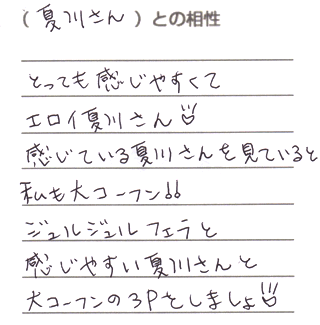 （夏川さん）との相性
とっても感じやすくて
エロイ夏川さん
感じている夏川さんを見ていると
私も大コーフン!!
ジュルジュルフェラと
感じやすい夏川さんと
大コーフンの3Pをしましょ